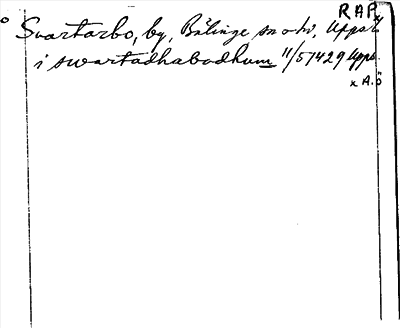 RAP
° Svartarbo, by, Bälinge sn o hd, Uppsl
i swartadhabodhum 11/5 1429 Upps.
x A.Ö